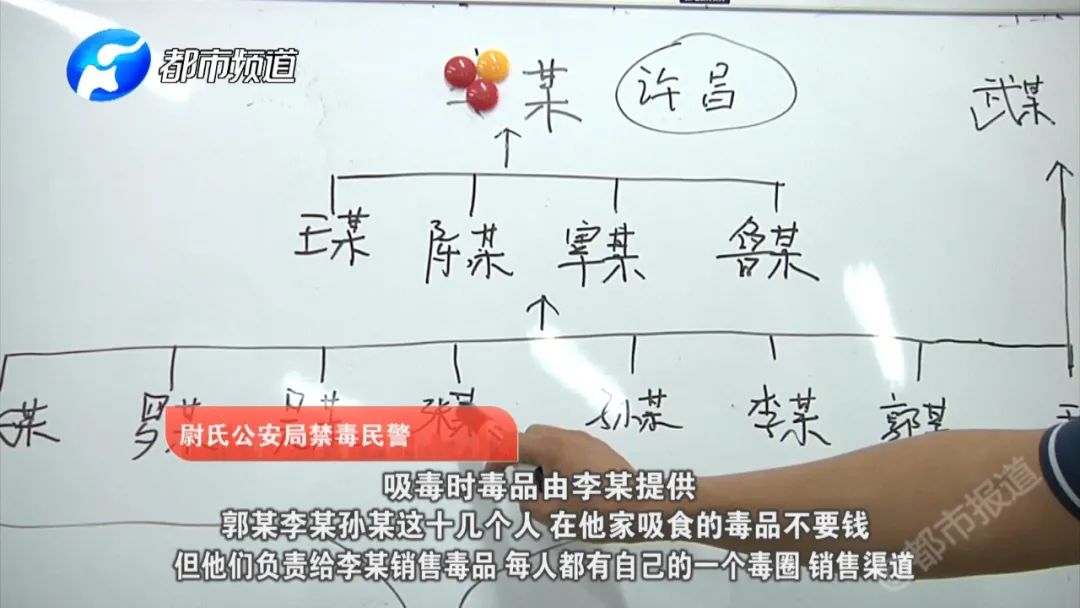 都市频道
某 许昌 武某
王某 陈某 覃某 鲁某
某 罗某 吴某 张某 孙某 李某 郭某
尉氏公安局禁毒民警
吸毒时毒品由李某提供
郭某李某孙某这十几个人 在他家吸食的毒品不要钱
但他们负责给李某销售毒品 每人都有自己的一个毒圈 销售渠道
@都市报道